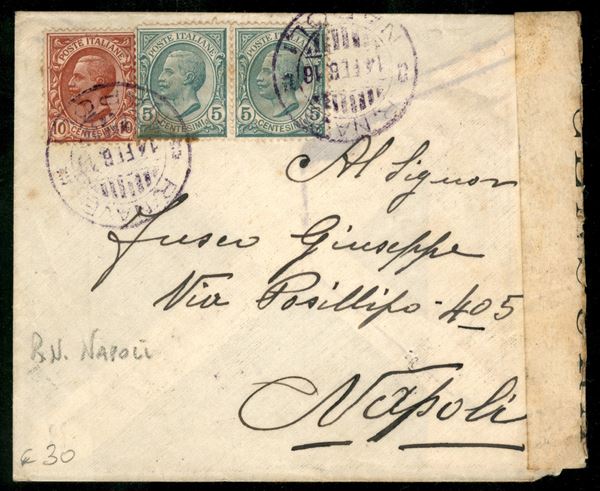 POSTE ITALIANE
10 CENTESIMI 10
POSTE ITALIANE
5 CENTESIMI 5
POSTE ITALIANE
5 CENTESIMI 5
R. NAVE
14 FEB 16
R. NAVE
14 FEB
Al Signor
Fusco Giuseppe
Via Posillipo - 405
Napoli
R.N. NAPOLI
€ 30